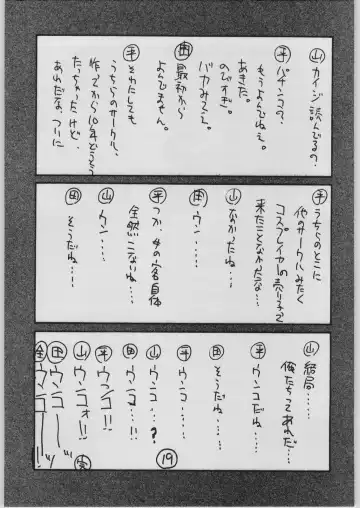 山 カイジ読んでるの?
平 パチンコで、
もうよんでねぇ。
あきた。
のびすぎ。
バカみてぇ。
田 最初から
よんでません。
平 それにしても
うちらのサークル、
作ってから10年どころ
たっちゃったけど、
あれだな、ついに
平 うちらのとこに
他のサークルみたく
コスプレイヤーの売り子って
来たことなかったな…
山 なかったね……
田 ウン……
平 つか女の客自体
全然こないね……
山 ウン……
田 そうだね……
山 結局……
俺たちってあれだ…
平 ウンコだね……
田 そうだね……
平 ウンコ……
山 ウンコ……?
田 ウンコ……!
平 ウンコ!!
山 ウンコォ!!
田 ウンコーー
全 ウンコーー!!
完
19